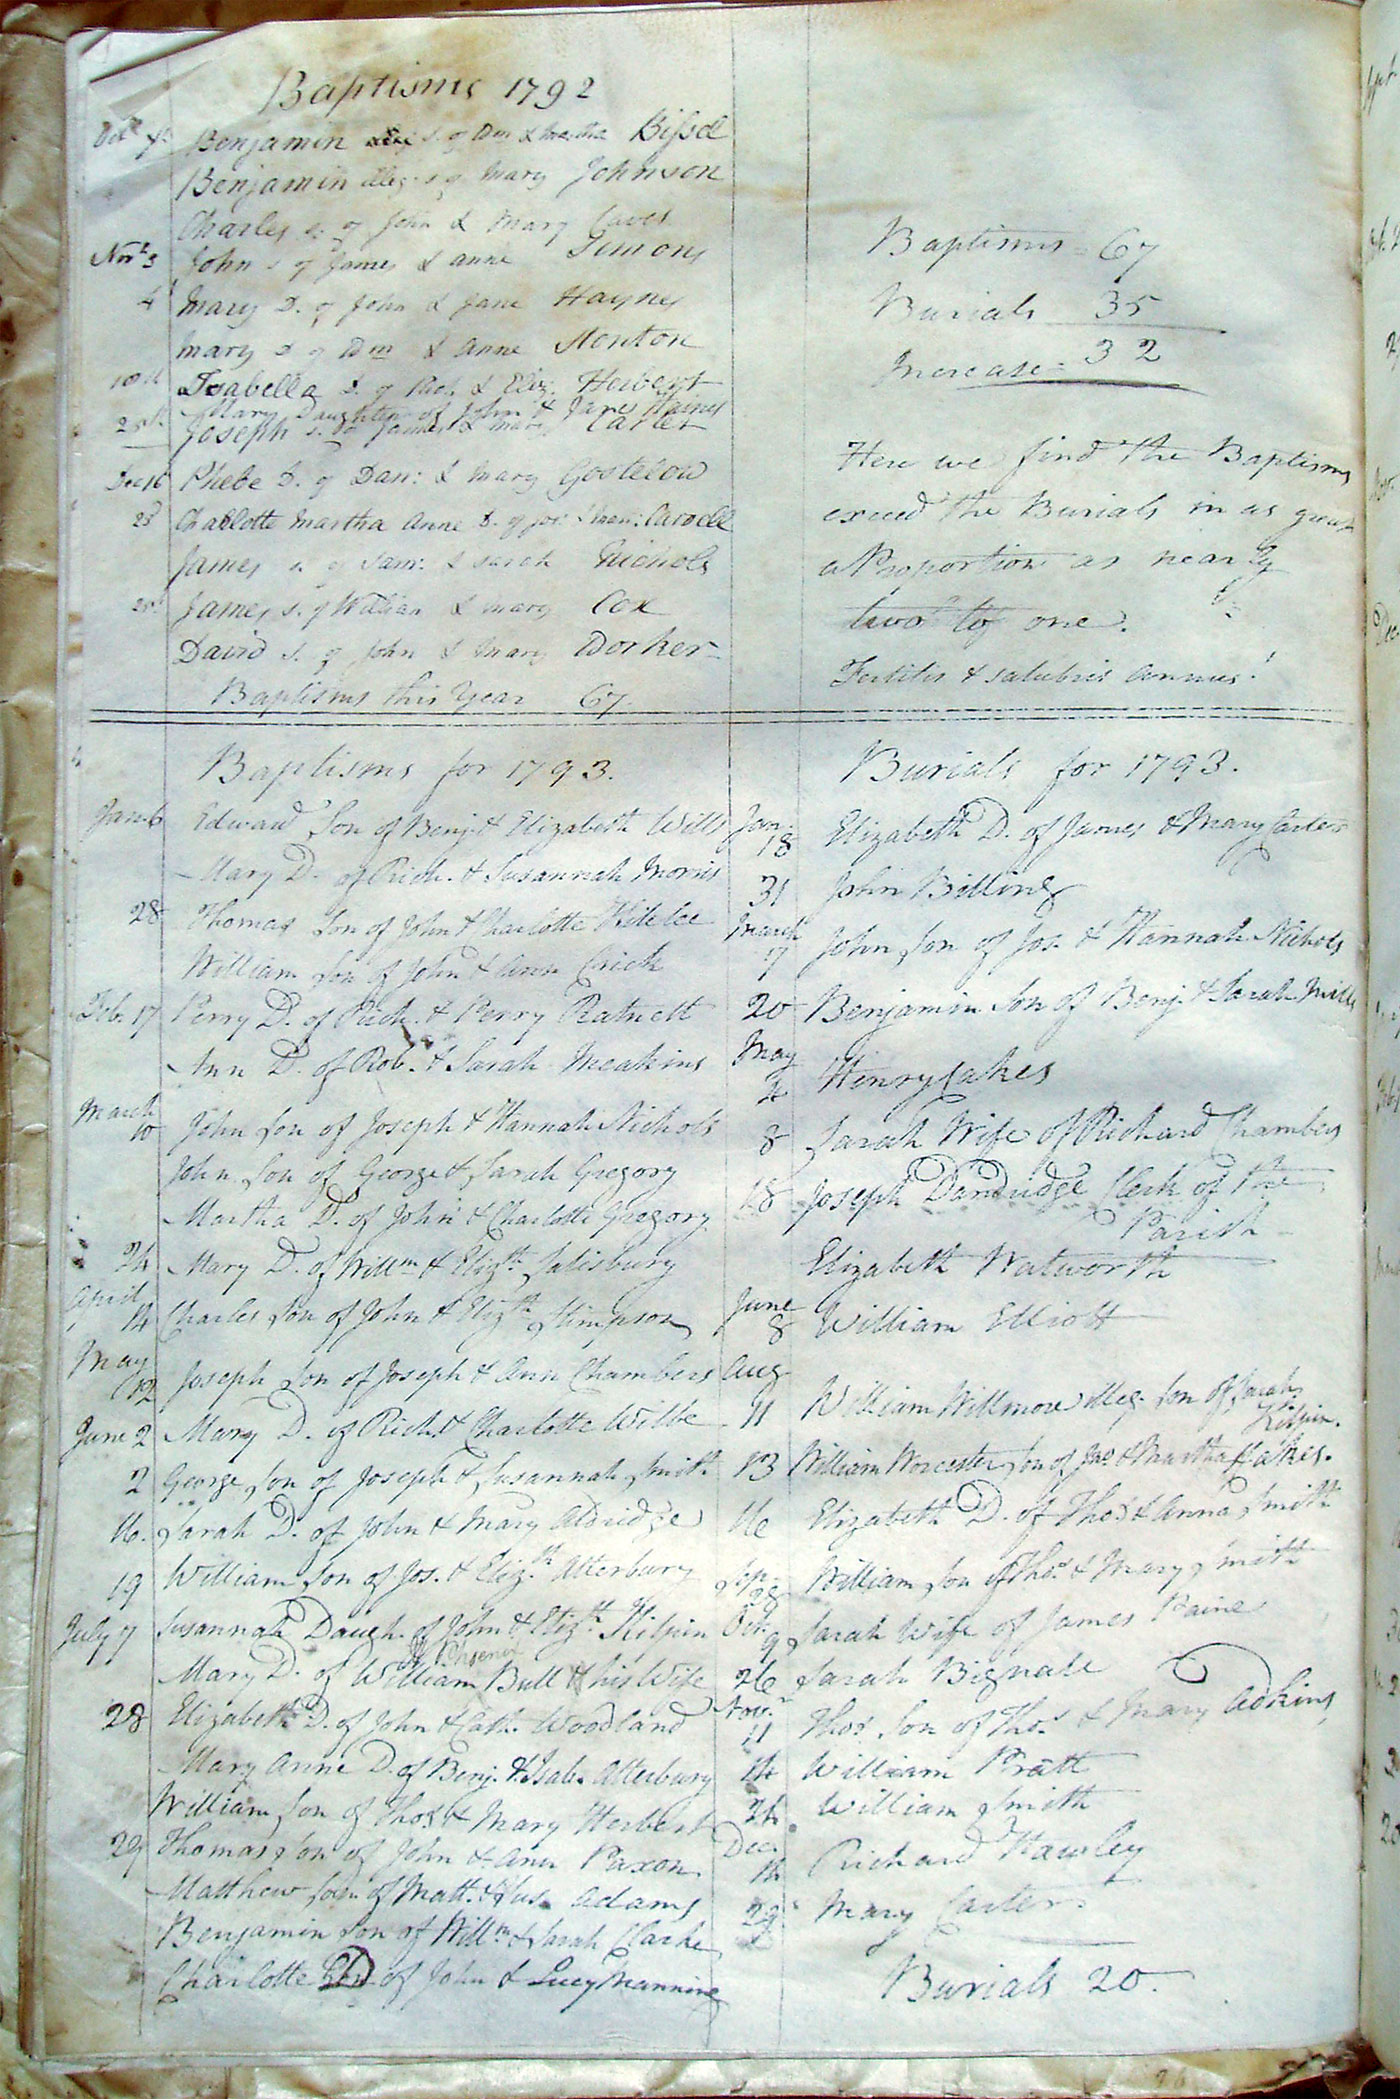 Baptisms 1792
Benjamin s. of Wm & Martha Bissel
Benjamin illeg. s. of Mary Johnson
Charles s. of John & Mary Caves
Novr 3 John s. of James & Anne Simons
4 Mary D. of John & Jane Haynes
Mary D of Wm & Anne Stonton
18th Isabella D. of Rich. & Eliz. Herbert
Mary Daughter of John & Jane Haines
25th Joseph s. of James & Mary Carter
Dec 16 Phebe D. of Dan: & Mary Gostelow
23d Charlotte Martha Anne D. of Jos:
James s. of Sam: & Sarah Nichols
James s. of William & Mary Cox
David s. of John & Mary Worker
Baptisms this Year 67.
Baptisms = 67
Burials 35
Increase = 32
Here we find the Baptisms
exceed the Burials in as great
a Proportion as nearly
two to one.
Fertilis & salubris annus!
Baptisms for 1793.
Jan. 6 Edward Son of Benj. & Elizabeth Wills
Mary D. of Rich. & Susannah Morris
28 Thomas Son of John & Charlotte Kitelee
William Son of John & Ann Crick
Feb. 17 Perry D. of Rich. & Perry Ratnett
Ann D. of Rob. & Sarah Meakins
March
10 John Son of Joseph & Hannah Nichols
John Son of George & Sarah Gregory
Martha D. of John & Charlotte Gregory
24 Mary D. of Willm & Elizth Salisbury
April
14 Charles Son of John & Elizth Stimpson
May
12 Joseph Son of Joseph & Ann Chambers
June 2 Mary D. of Rich. & Charlotte Wilbe
2 George Son of Joseph & Susannah Smith
16. Sarah D. of John & Mary Aldridge
19 William Son of Jos. & Elizth Atterbury
July 7 Susannah Daugh. of John & Elizth Kilpin
Mary D. of William Bull & his Wife
28 Elizabeth D. of John & Cath. Woodland
Mary Anne D. of Benj. & Isab. Atterbury
William Son of Thos & Mary Herbert
29 Thomas Son of John & Ann Paxon
Matthew Son of Matt. & Sus. Adams
Benjamin Son of Willm & Sarah Clarke
Charlotte D of John & Lucy Manning
Burials for 1793.
Jan.
18 Elizabeth D. of James & Mary Carter
31 John Billing
March
17 John Son of Jos. & Hannah Nichols
20 Benjamin Son of Benj. & Sarah Mills
May
4 Henry Oakes
8 Sarah Wife of Richard Chambers
18 Joseph Dandridge Clerk of the
Parish
Elizabeth Watworth
June
8 William Elliott
Aug
11 William Willmore illeg. Son of Sarah
Kilpin.
13 William Worcester Son of Jno & Martha Oakes.
16 Elizabeth D. of Thos & Anna Smith
Sep.
28 William Son of Thos. & Mary Smith
Oct.
9 Sarah Wife of James Paine
26 Sarah Bignall
Novr
11 Thos. Son of Thos. & Mary Adkins
14 William Pratt
24 William Smith
Dec.
14 Richard Hawley
29 Mary Carter.
Burials 20.